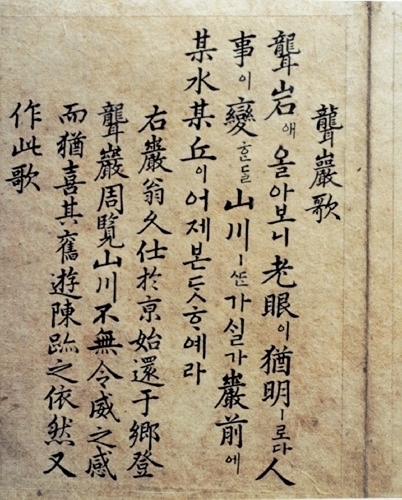 聾巖歌
聾岩애올아보니老眼이猶明ㅣ로다人
事이變ᄒᆞᆫᄃᆞᆯ山川ㅣᄯᆞᆫ가실가巖前에
某水某丘이어제본ᄃᆞᆺᄒᆞ예라
右巖翁久仕於亰始還于鄉登
聾巖周覽山川不無令威之感
而猶喜其舊遊陳跡之依然又
作此歌